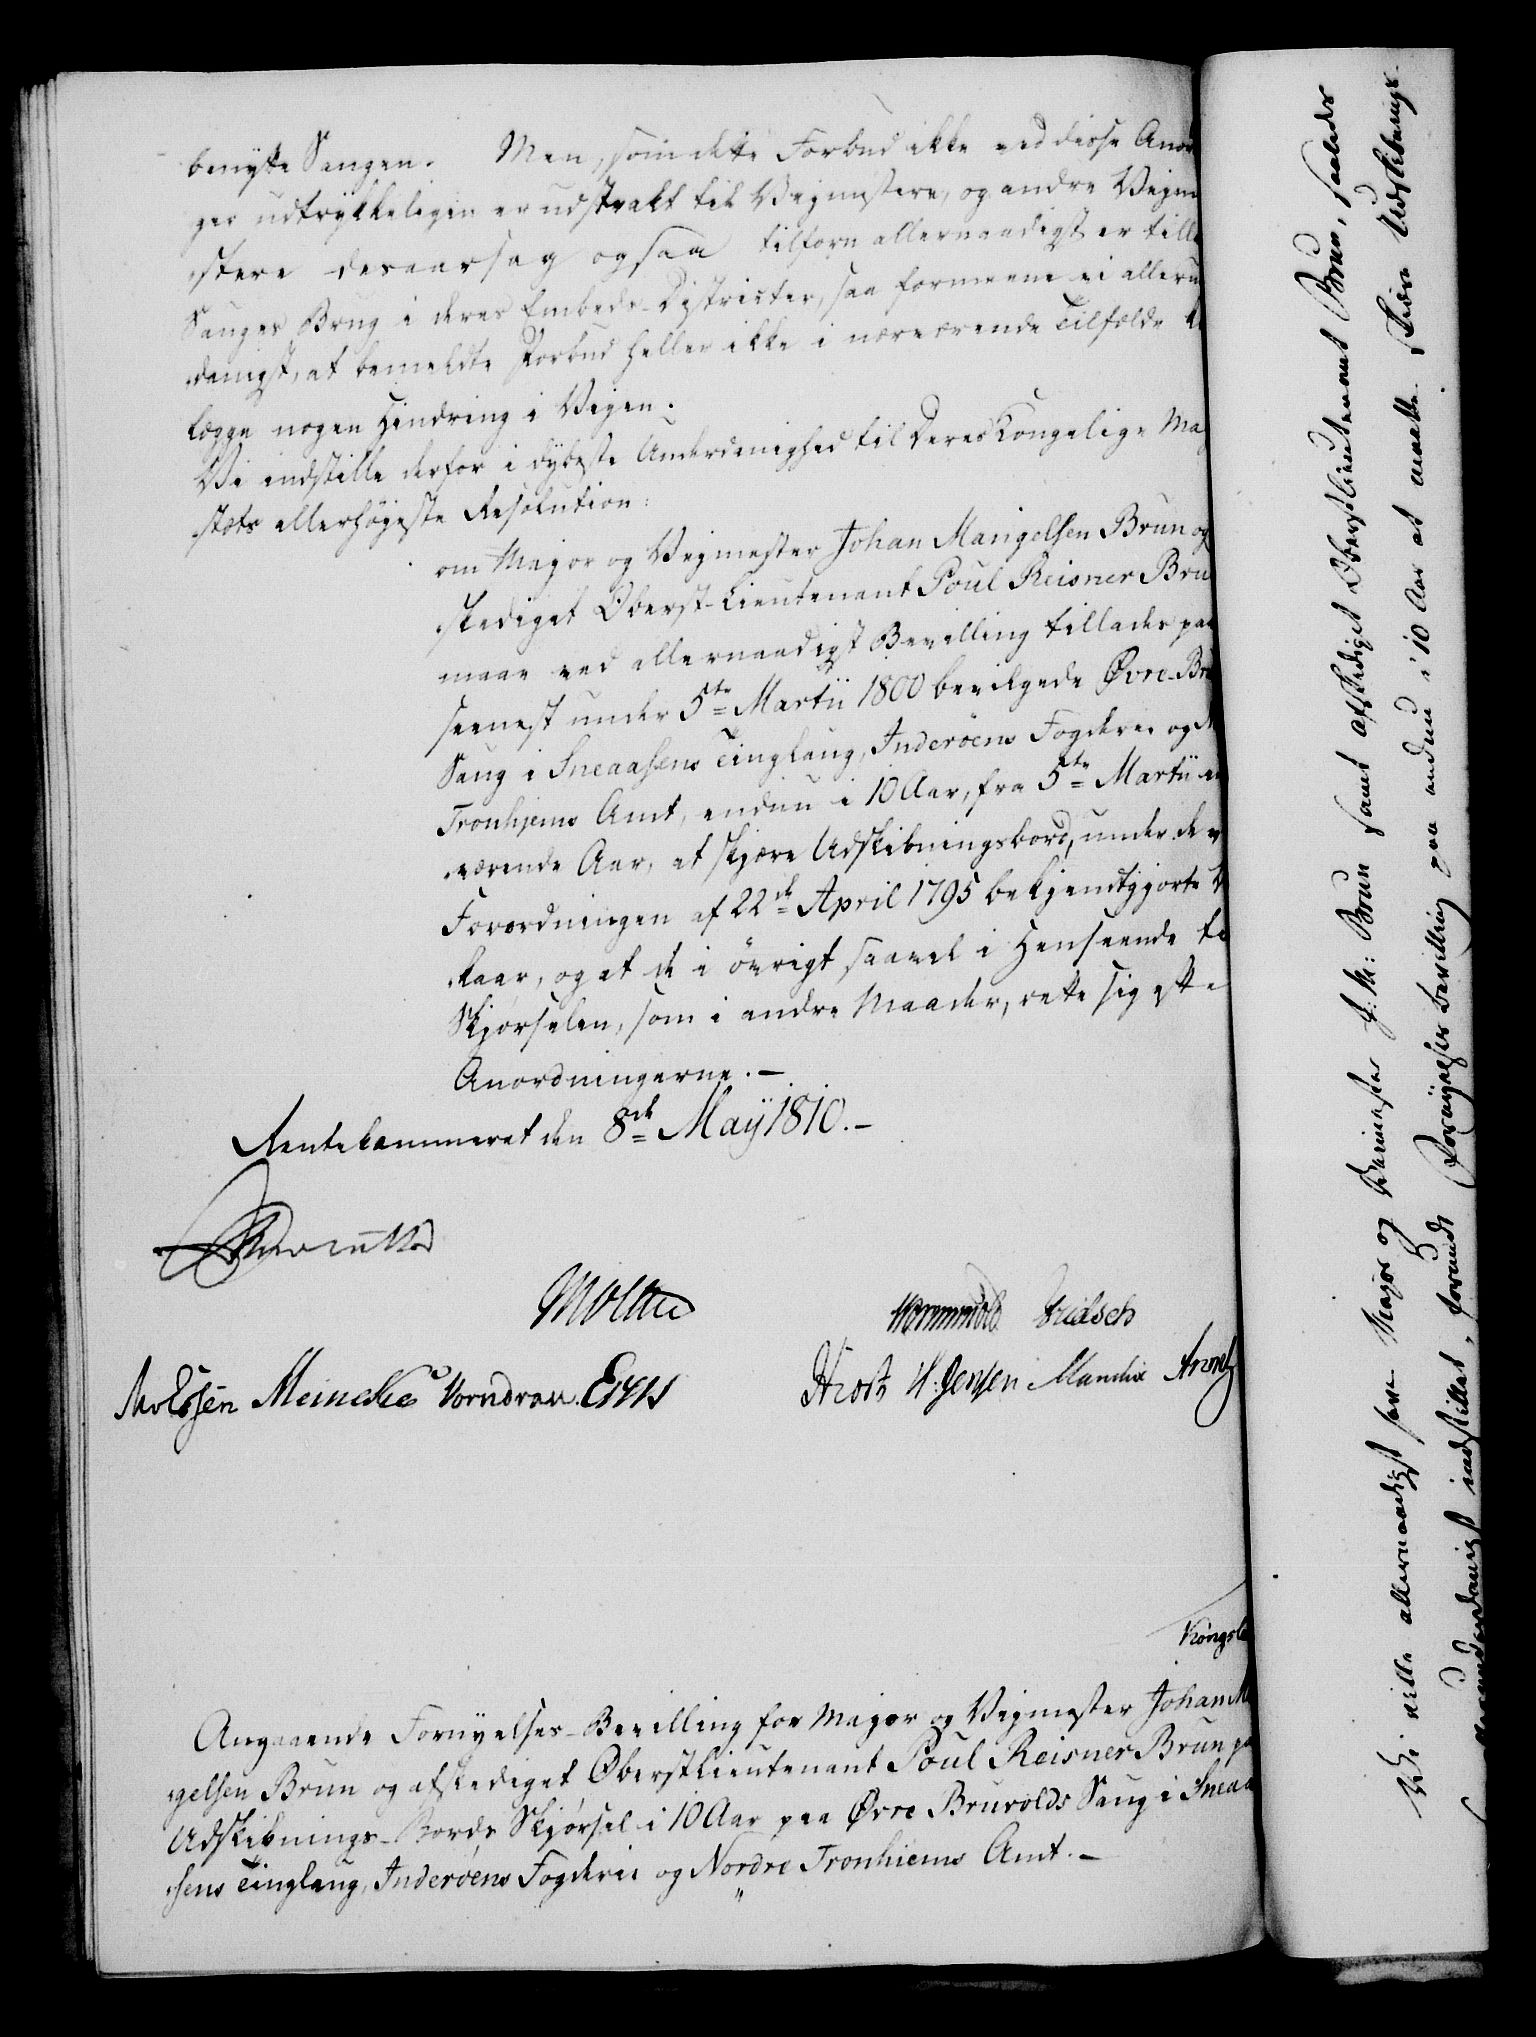 benytte Saugen. Men, som dette Forbud ikke ved disse Anord
ger udtrykkeligen er udstrakt til Vejmestere, og andre Vejme
stere desaarsag ogsaa tilforn allernaadigst er tilla
Sauges Brug i deres Embeds-Districter, saa formeene vi alleru
danigst, at bemeldte Forbud heller ikke i nærværende Tilfælde
lægge nogen Hindring i Vejen.
Vi indstille derfor i dybeste Underdanighed til Deres Kongelige Ma
stæts allerhøjeste Resolution:
om Major og Vejmester Johan Mangelsen Brun og
skediget Oberst-Lieutenant Poul Reisner Bru
maae ved allernaadigst Bevilling tillades paa
seenest under 5te Martii 1800 bevilgede Øvre-Br
Saug i Sneaasens Tinglaug, Inderöens Fogderie og
Tronhjems Amt, endnu i 10 Aar, fra 5te Martii
værende Aar, at skjære Udskibningsbord, under de v
Forordningen af 22de April 1795 bekjendtgjorte V
kaar, og at de i övrigt saavel i Henseende til
Skjørselen, som i andre Maader, rette sig efte
Anordningerne. —
Rentekammeret den 8de Maÿ 1810. —
Moltke
Wormskiold Fridsch
Meincke Vorndran
H: Jensen Mandix
Kongsb
Angaaende Fornyelses-Bevilling for Major og Vejmester Johan M
gelsen Brun og afskediget Øberstlieutenant Poul Reisner Brun pa
Udskibnings-Bords Skjørsel i 10 Aar paa Øvre Bruvolds Saug i Sneaa
sens Tinglaug, Inderöens Fogderie og Nordre Tronhiems Amt. —
Vi ville allernaadigst have Major og Veimester J: M: Brun samt afskediget Oberstlieutenant Brun, saaledes
allerunderdanigst indstillet, forundt Fornÿelses bevilling paa endnu i 10 Aar at maatte skiære Udskibnings-